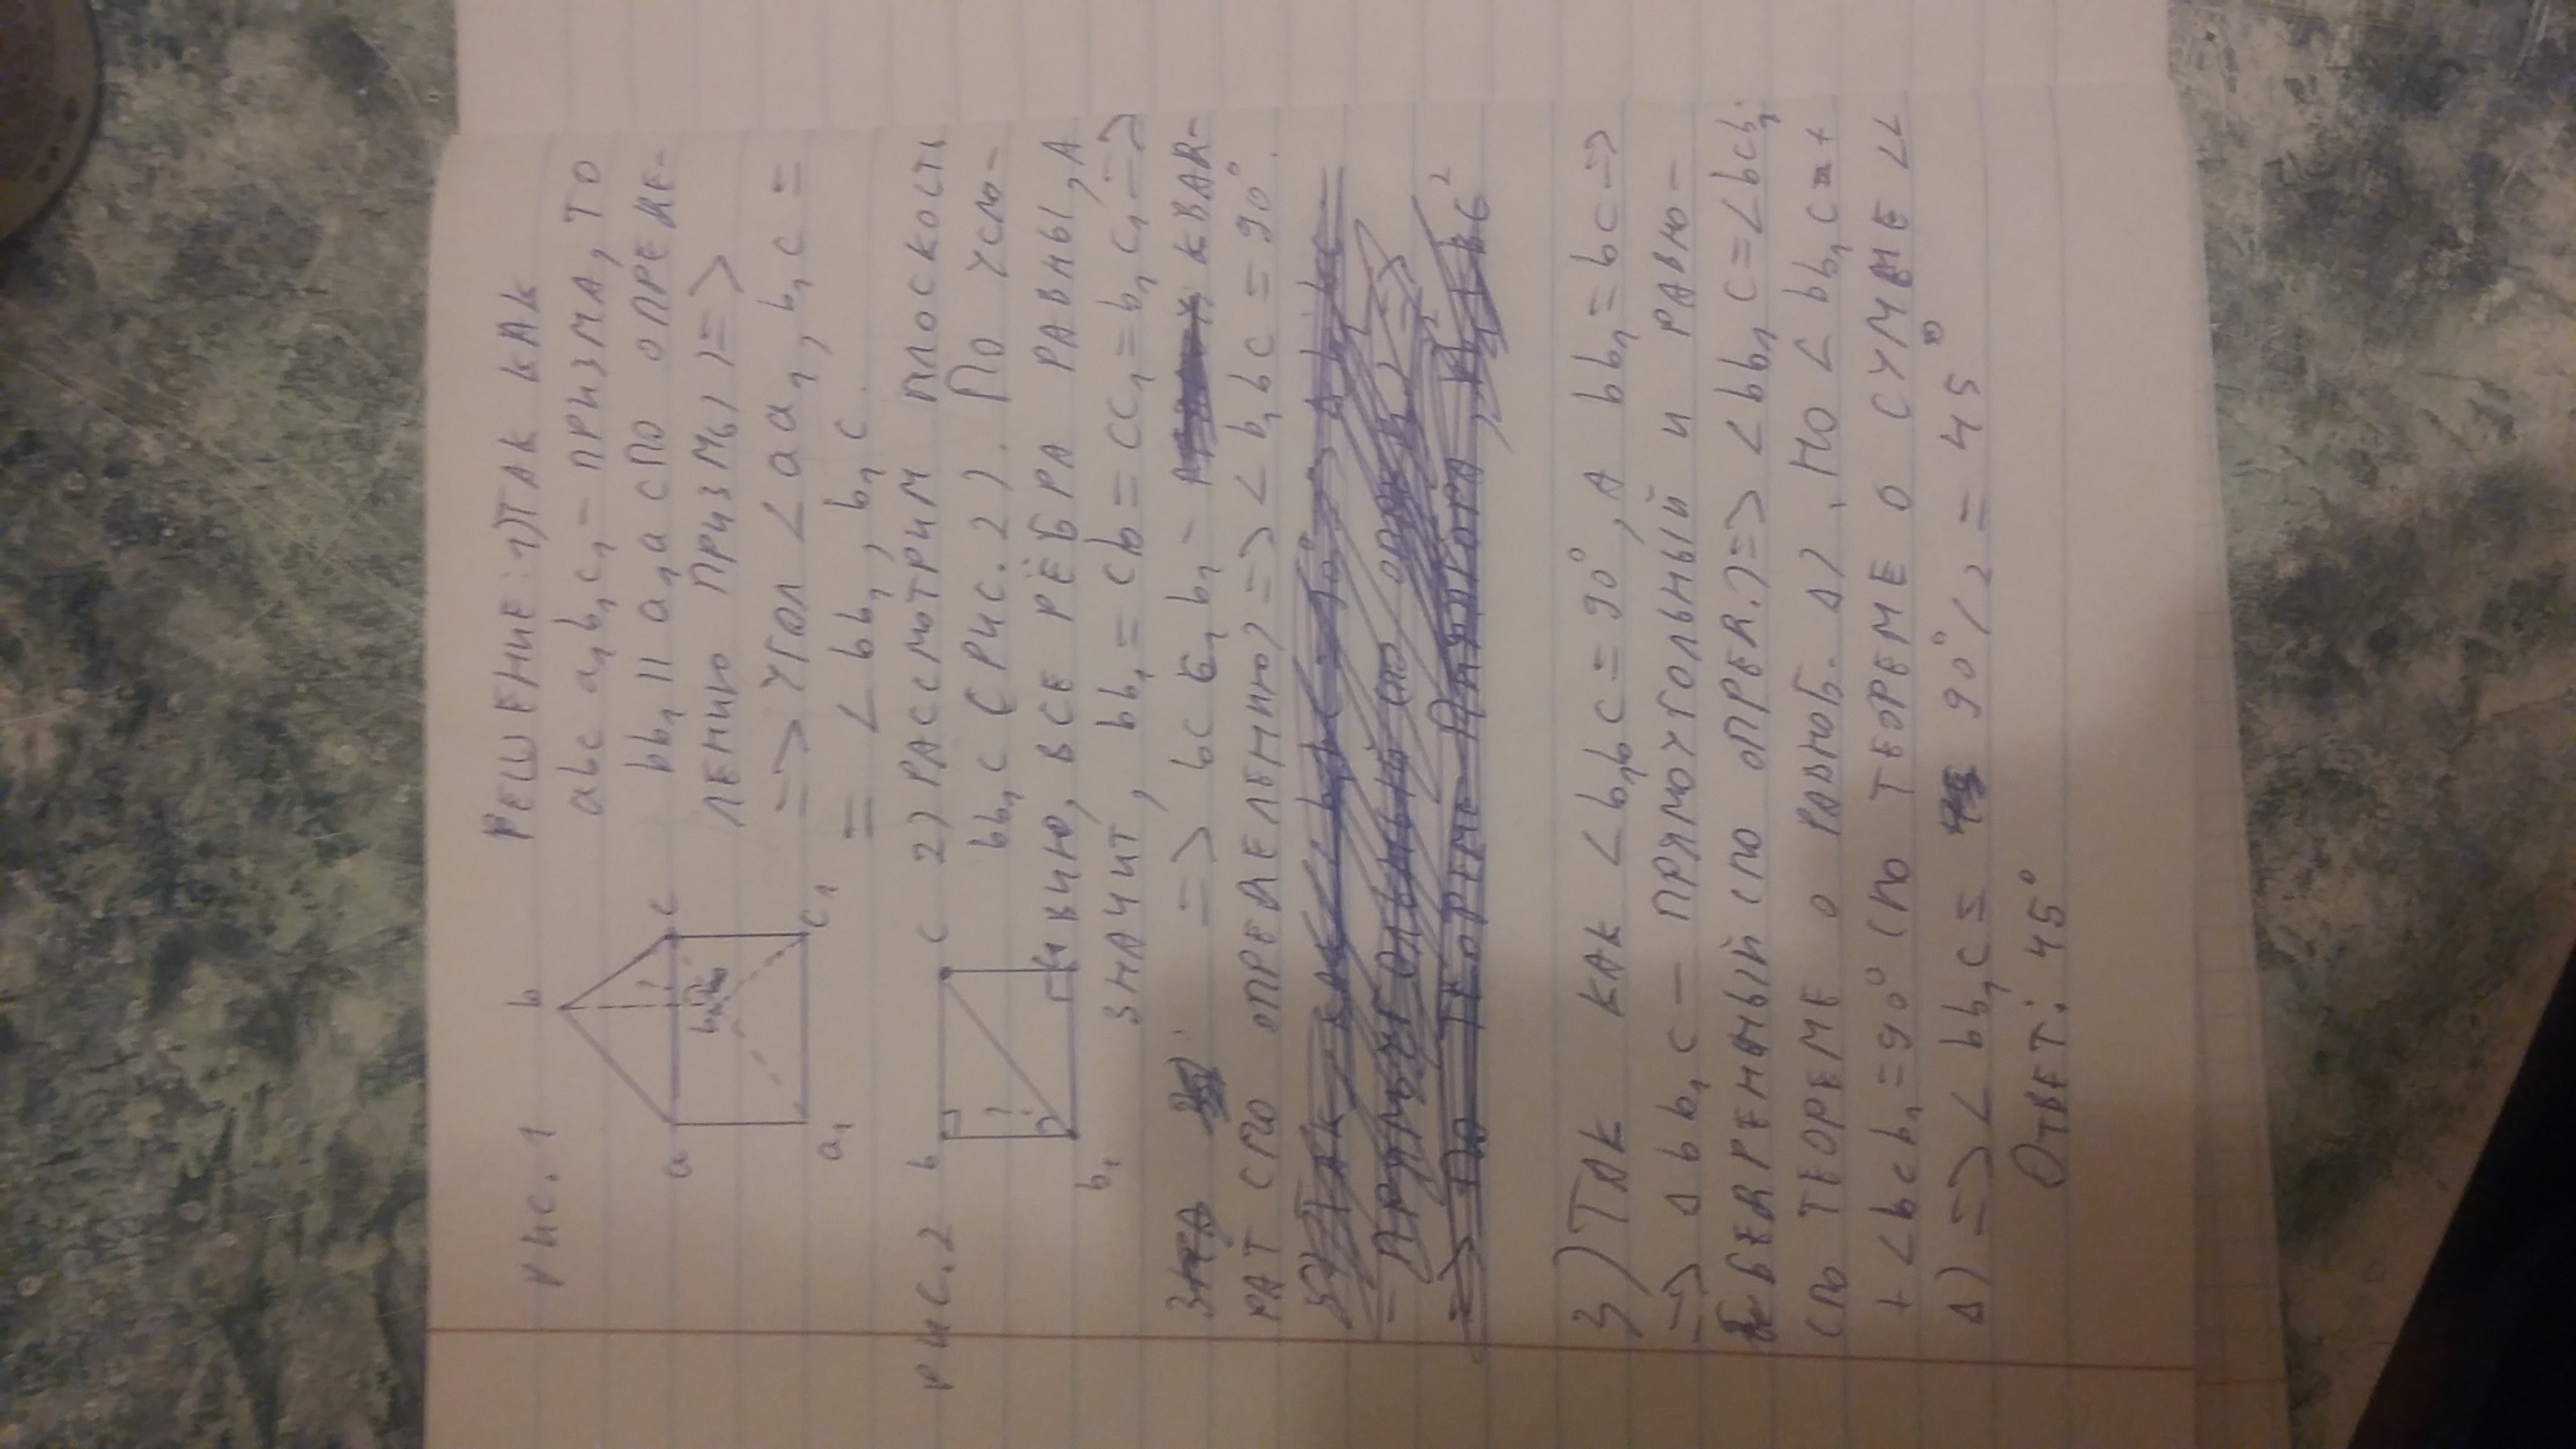 рис. 1
b
Решение: 1) Так как
abc a₁b₁c₁ - призма, то
a
c
bb₁ || a₁a (по опреде-
лению призмы) =>
a₁
c₁
=> угол ∠aa₁, b₁c =
= ∠ bb₁, b₁c.
рис. 2
b
c
2) Рассмотрим плоскость
bb₁c (рис. 2). По усло-
b₁
c₁
вию, все рёбра равны, а
значит, bb₁ = cb = cc₁ = b₁c₁ =>
=> bcc₁b₁ - квад-
рат (по определению) => ∠ b₁bc = 90°.
3) Так как ∠b₁bc = 90°, а bb₁ = bc =>
=> Δ bb₁c - прямоугольный и равно-
бедренный (по опред.) => ∠bb₁c = ∠bcb₁
(по теореме о равноб. Δ), но ∠bb₁c +
+ ∠bcb₁ = 90° (по теореме о сумме ∠∠
Δ) => ∠ bb₁c = 90°/2 = 45°
Ответ: 45°